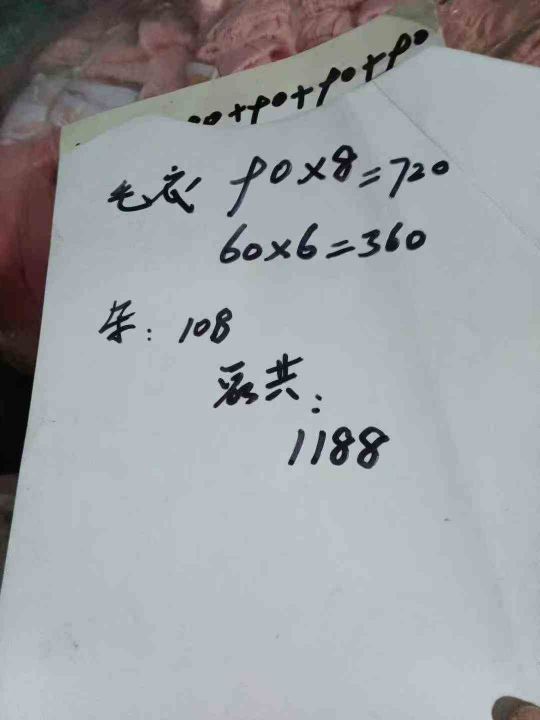 +90+90+90
毛衣 90×8=720
60×6=360
车: 108
总共:
1188